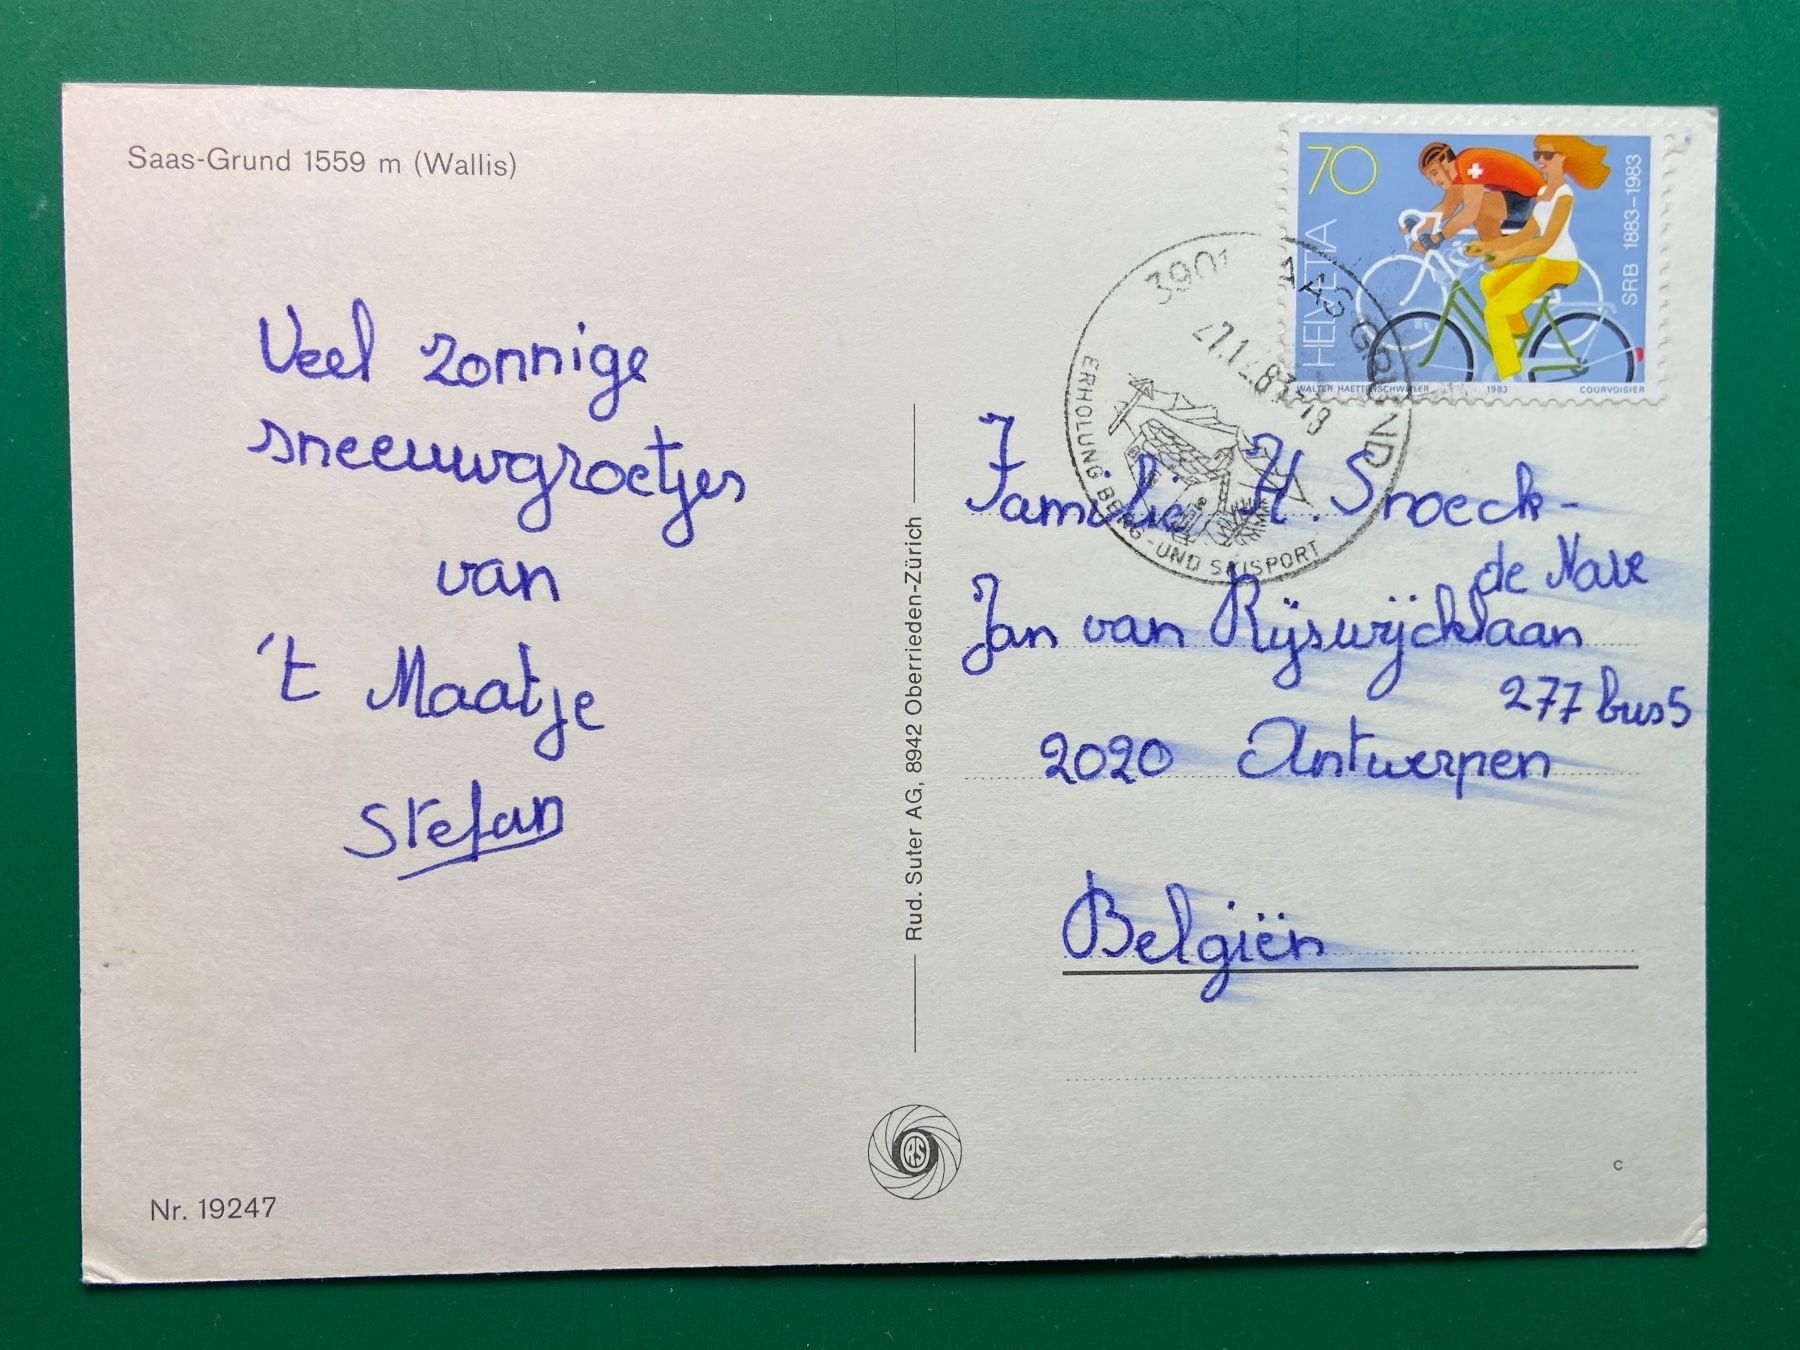 Saas-Grund 1559 m (Wallis)
Veel zonnige
sneeuwgroetjes
van
't Maatje
Stefan
Nr. 19247
Rud. Suter AG, 8942 Oberrieden-Zürich
RS
70
HELVETIA
SRB 1883-1983
WALTER HAETTENSCHWEILER 1983 COURVOISIER
3901 SAAS GRUND
27.12.83-18
ERHOLUNG BERG-UND SKISPORT
Familie H. Snoeck-
de Nave
Jan van Rijswijcklaan
277 bus 5
2020 Antwerpen
Belgiën
c